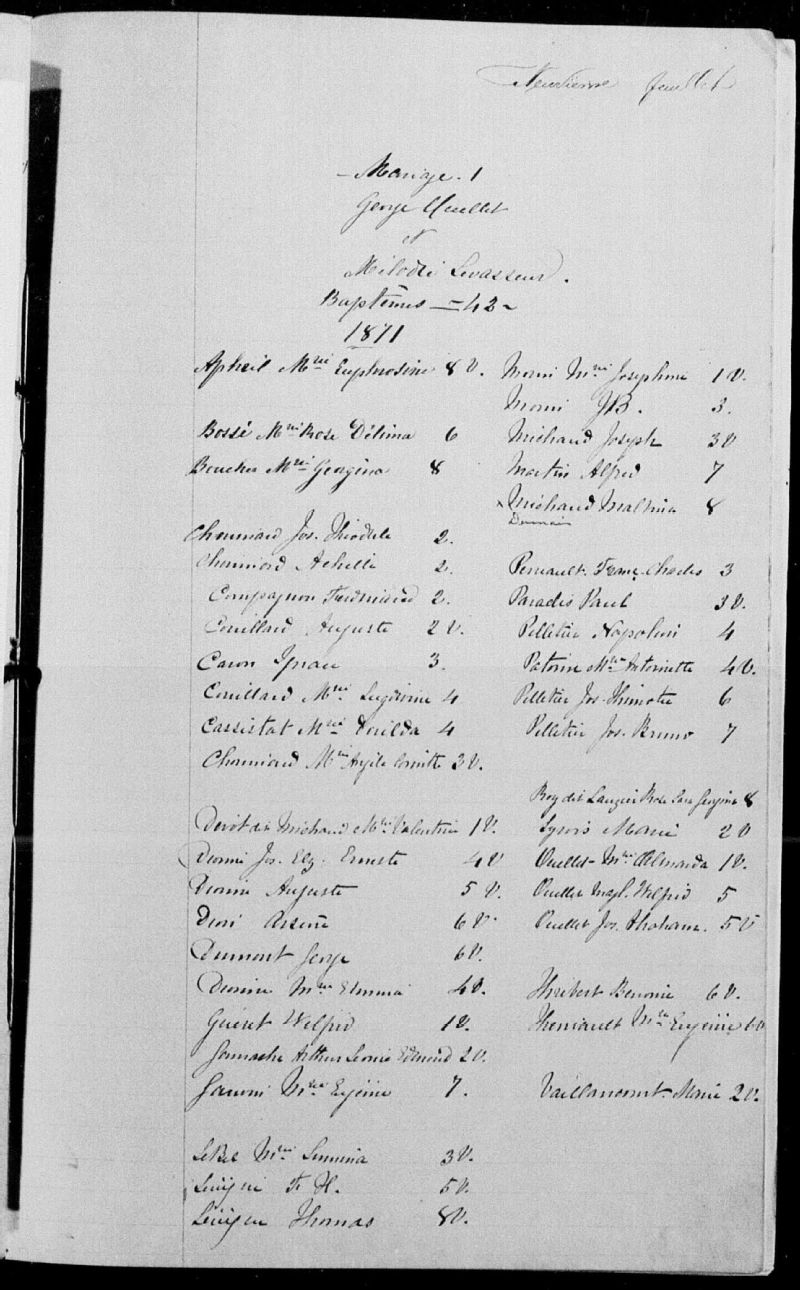 Neuvième feuillet
Mariage. 1
George Ouellet
et
Mélodie Levasseur.
Baptêmes — 42 –
1871
Apheil Mrie Euphrosine 8 V.
Bossé Mrie Rose Délima 6
Boucher Mrie Georgina 8
Chouniard Jos. Théodule 2.
Chouniard Achille 2.
Compagnon Ferdinand 2.
Couillard Auguste 2 V.
Caron Ignace 3.
Couillard Mrie Lugdivine 4
Cassistat Mrie Vouilda 4
Chouniard Mrie 3 V.
Devot dit Michaud Mrie Valentine 1 V.
Dionni Jos. Elz. Erneste 4 V
Dionni Auguste 5 V.
Dion Arsène 6 V
Dumont George 6 V.
Dionne Mrie Emma 4 V.
Guéret Wilfrid 1 V.
Gamache Arthur Leonie Edmond 2 V.
Mrie Eugénie 7.
LeBel Mrie 3 V.
Lévêque F. H. 5 V.
Lévêque Thomas 8 V.
Morin Mrie Josephine 1 V.
Morin JB. 3.
Michaud Joseph 3 V
Martin Alfred 7
x Michaud Malvina 8
Perreault Franç. Charles 3
Paradis Paul 3 V.
Pelletier Napoleon 4
Patoine Mrie Antoinette 4 V.
Pelletier Jos. Thimoté 6
Pelletier Jos. Bruno 7
Roy dit Lauzier Rose Georgina 8
Syrois Marie 2 V
Ouellet Mrie Almanda 1 V.
Ouellet Magl. Wilfrid 5
Ouellet Jos. Abraham. 5 V
Thribert Benonie 6 V.
Theriault Mrie Eugénie 6 V
Vaillancourt Marie 2 V.